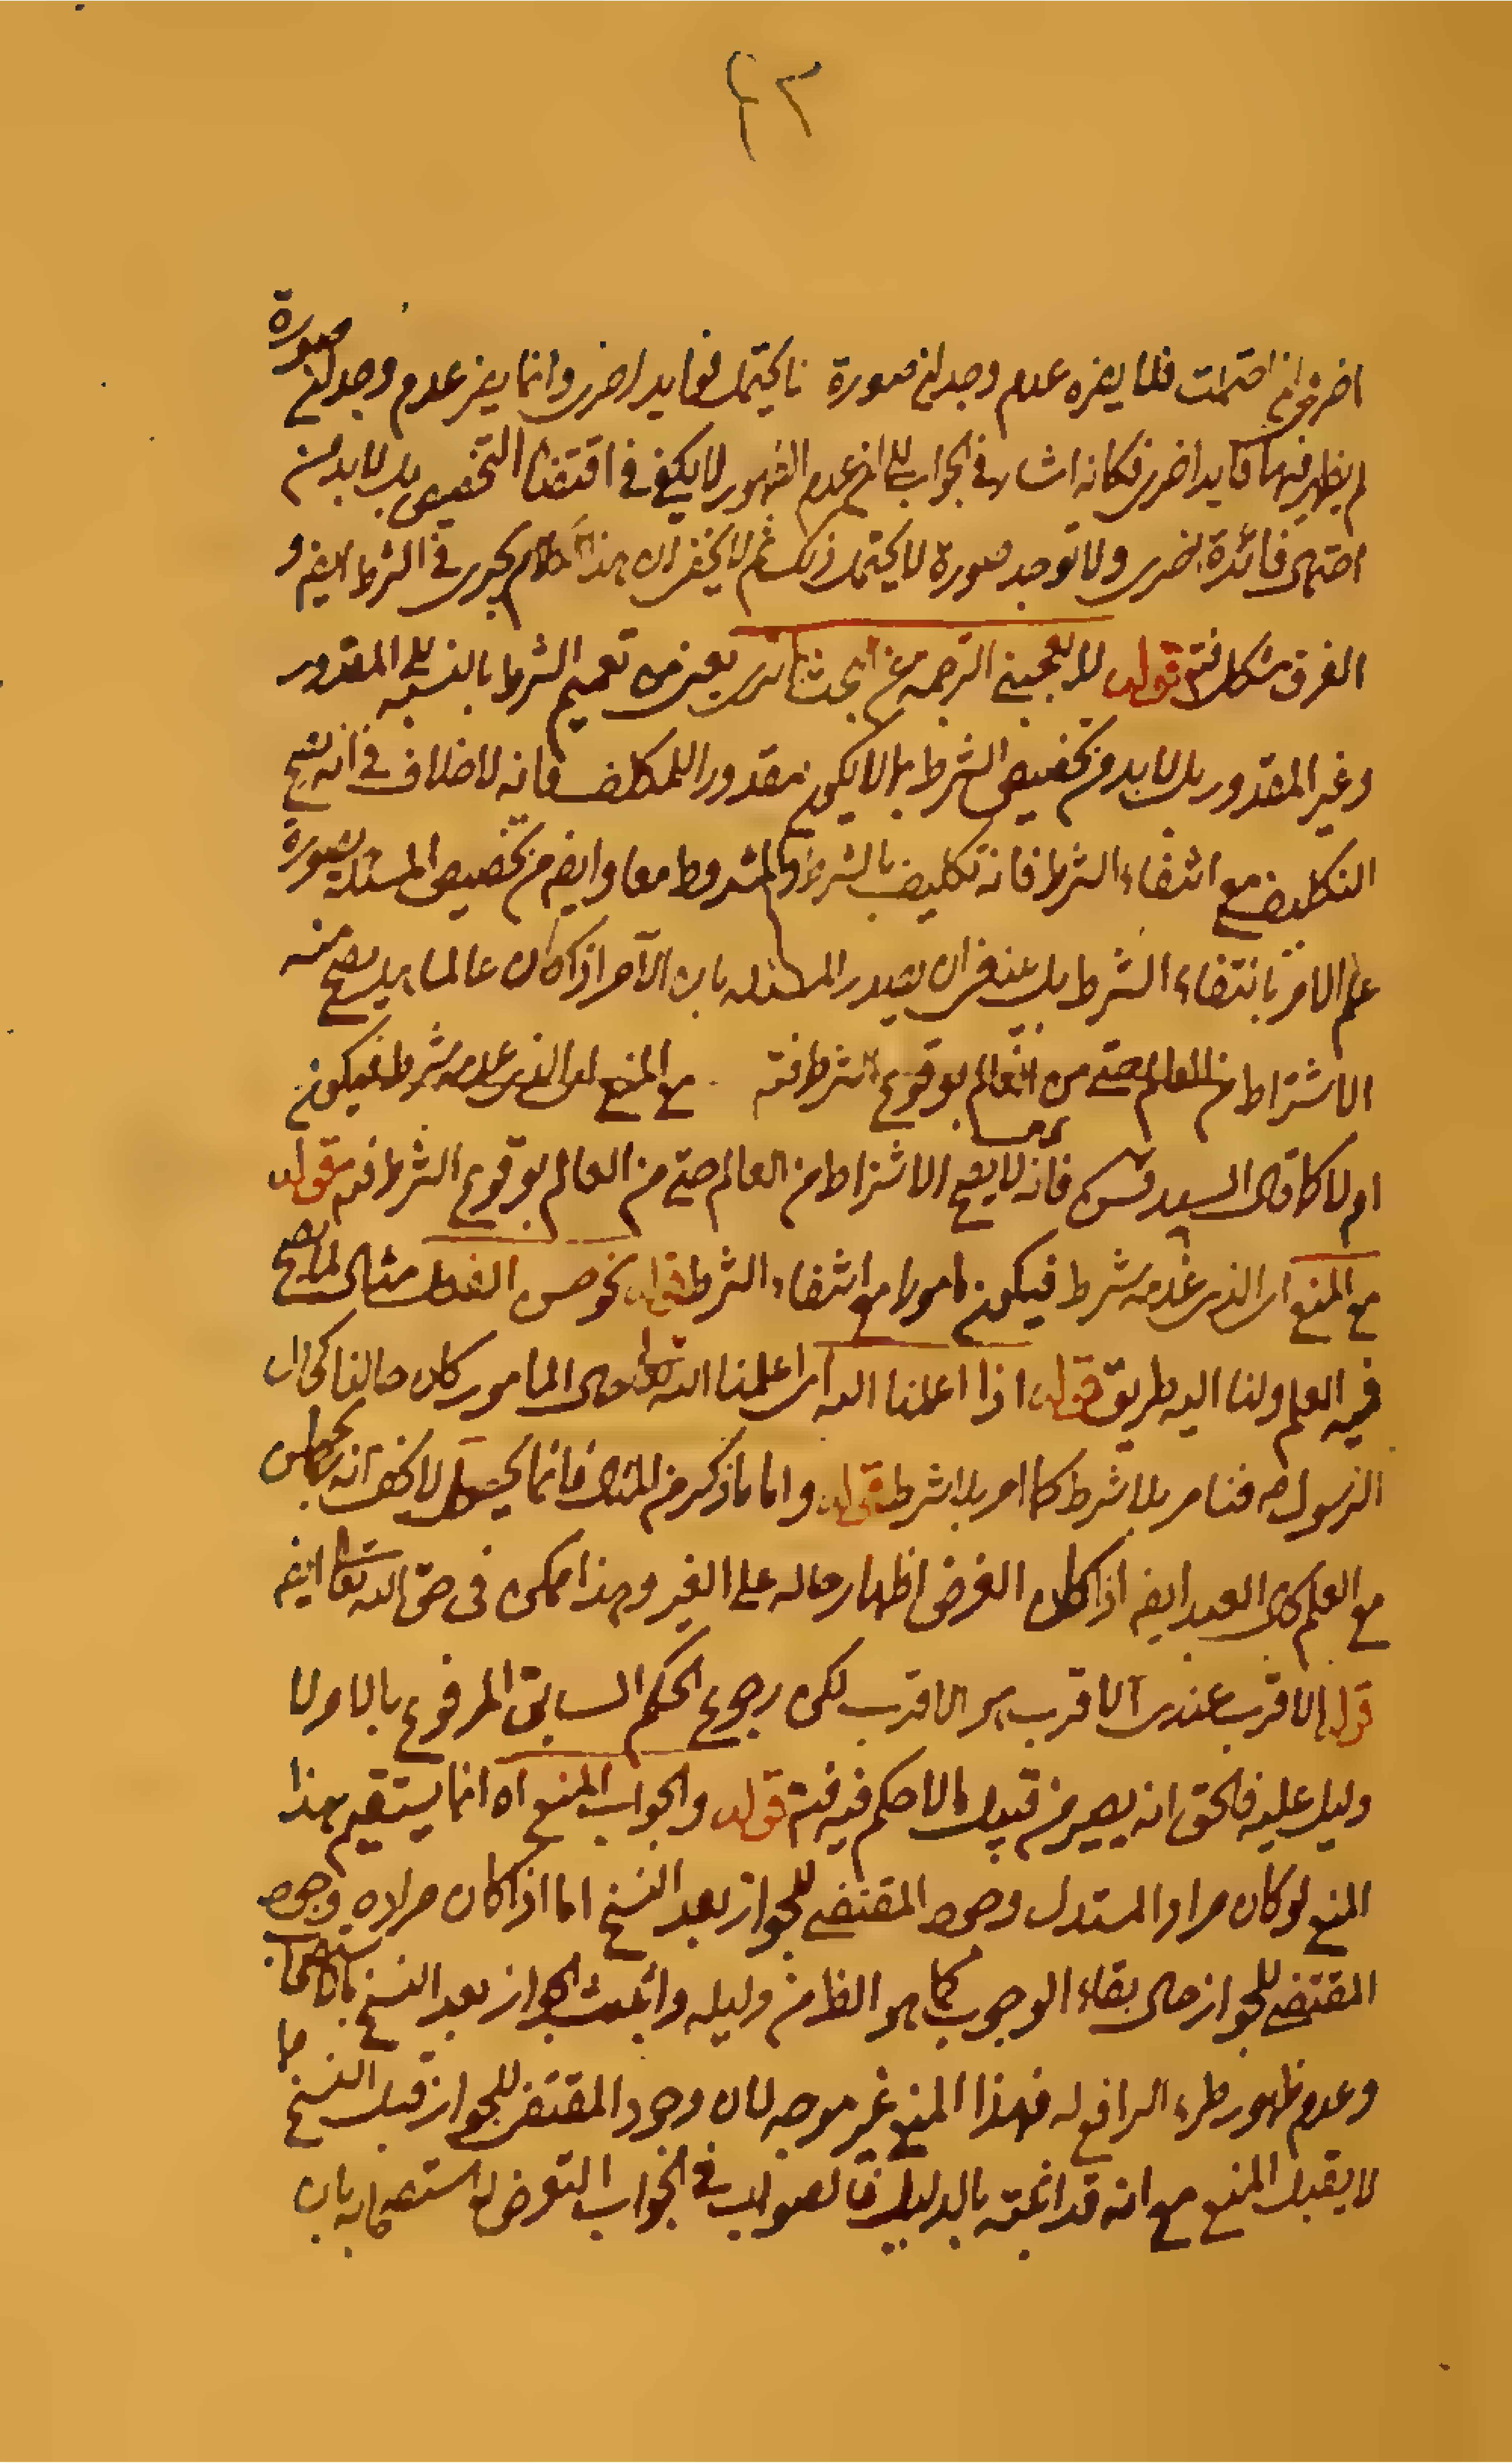 ٤٣
اخرى ان احتملت فلا يضره عدم وجدان صورة لا يحتمل فوايد اخرى وانما يضر عدم وجدان صورة
لم يظهر فيها فايدة اخرى فكانه اشار في الجواب الى ان عدم الظهور لا يكفى في اقتضاء التخصيص بل لا بد من
احتمال فائدة اخرى ولا توجد صورة لا يحتمل ذلك ثم لا يخفى ان هذا الكلام يجرى في الشرط ايضا و
الفرق مشكل فت قوله لا يعجبنى الترجمة عن البحث الذى يعنى من تعميم الشرط بالنسبة الى المقدور
وغير المقدور بل لا بد من تخصيص الشرط بما لا يكون مقدورا للمكلف فانه لا خلاف في انه يصح
التكليف مع انتفاء الشرط فانه تكليف بالشرط والمشروط معا وايضا من تخصيص المسئلة بصورة
علم الامر بانتفاء الشرط بل ينبغى ان يصدر المسئلة بان الآمر اذا كان عالما هل يصح منه
الاشتراط من العالم حتى من العالم بوقوع الشرط فته مع المنع اى الذى علمه شرط فيكون
ام لا كما قال السيد قدس سره فانه لا يصح الاشتراط من العالم حتى من العالم بوقوع الشرط فته قوله
مع المنع اى الذى عدمه شرط فيكون مامورا مع انتفاء الشرط قوله نحو حسن الفعل مثال لما يصح
فيه العلم ولنا اليه طريق قوله اذا اعلمنا الله اى اعلمنا الله تعالى حال المامور كان حالنا كحال
الرسول ص فنامر بلا شرط كما امر بلا شرط قوله واما ما ذكر من المثال فانما يحسن لا يخفى انه يحسن
مع العلم بحال العبد ايضا اذا كان الغرض اظهار حاله على الغير وهذا ممكن فى حق الله تعالى ايضا
قوله الاقرب عندى الاقرب هو الاقرب لكن رجوع الحكم السابق المرفوع بالامر لا
دليل عليه فالحق انه يصير من قبيل ما لا حكم فيه فته قوله والجواب المنع اه انما يستقيم هذا
المنع لو كان مراد المستدل وجود المقتضى للجواز بعد النسخ اما اذا كان مراده وجود
المقتضى للجواز حال بقاء الوجوب كما هو الظ من دليله واثبت الجواز بعد النسخ بالاستصحاب
وعدم ظهور طرء الرافع له فهذا المنع غير موجه لان وجود المقتضى للجواز قبل النسخ مما
لا يقبل المنع مع انه قد اثبته بالدليل فالصواب في الجواب التعرض لاستصحابه بان